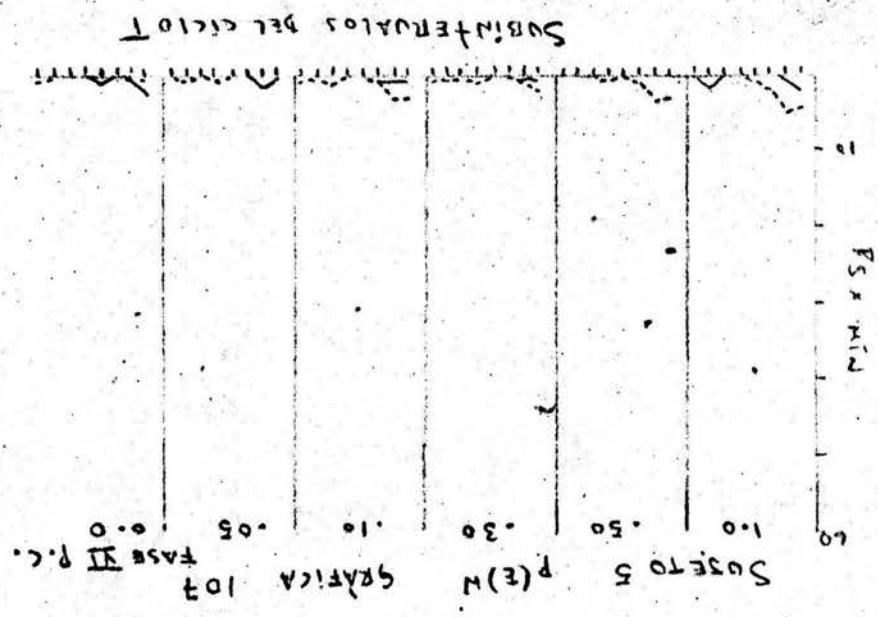 SUJETO 5 P(E)N GRÁFICA 107 FASE VI P.C.
1.0 .50 .30 .10 .05 0.0
60
RS x MIN
10
SUBINTERVALOS DEL CICLO T